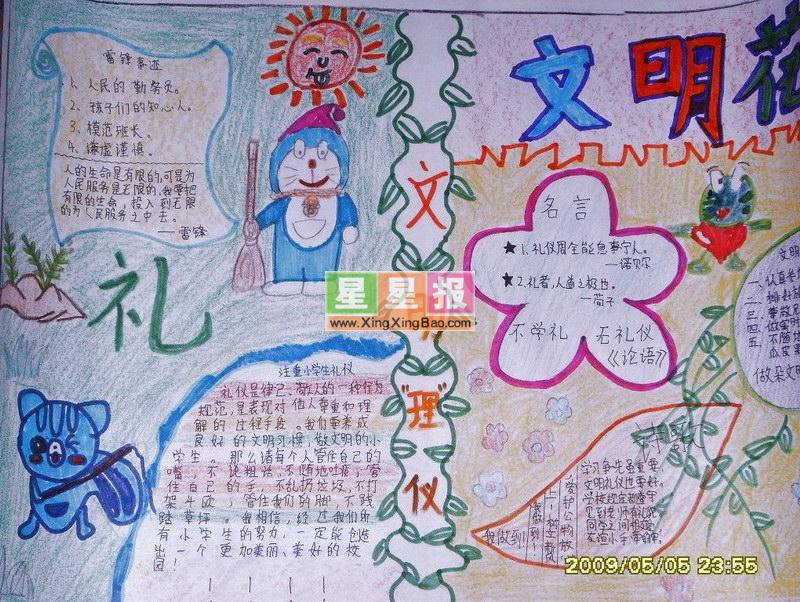 雷锋事迹
1、人民的勤务员。
2、孩子们的知心人。
3、模范班长。
4、谦虚谨慎。
人的生命是有限的，可是为
人民服务是无限的，我要把
有限的生命，投入到无限
的为人民服务之中去。
——雷锋
礼
注重小学生礼仪
礼仪是律己、敬人的一种行为
规范，是表现对他人尊重和理
解的过程手段。我们要养成
良好的文明习惯，做文明的小
学生。那么请每个人管住自己的
嘴，不说粗话，不随地吐痰；管
住自己的手，不乱扔垃圾，不打
架斗殴；管住我们的脚，不践
踏草坪。我相信，经过我们所
有小学生的努力，一定能创造
出一个更加美丽、美好的校
园！
文
明
"理"
仪
星星报
www.XingXingBao.com
文明花
名言
★1、礼仪周全能息事宁人。
—诺贝尔
★2、礼者，人道之极也。
—荀子
不学礼 无礼仪
《论语》
文明
一、认真
二、
三、尊敬
四、做
五、不随
瓜皮果
做朵文明
诗歌
学习争先重要，
文明礼仪也要
学校规定都遵守
见到老师有礼貌
同学之间
爱护公物
我做到！
2009/05/05 23:55